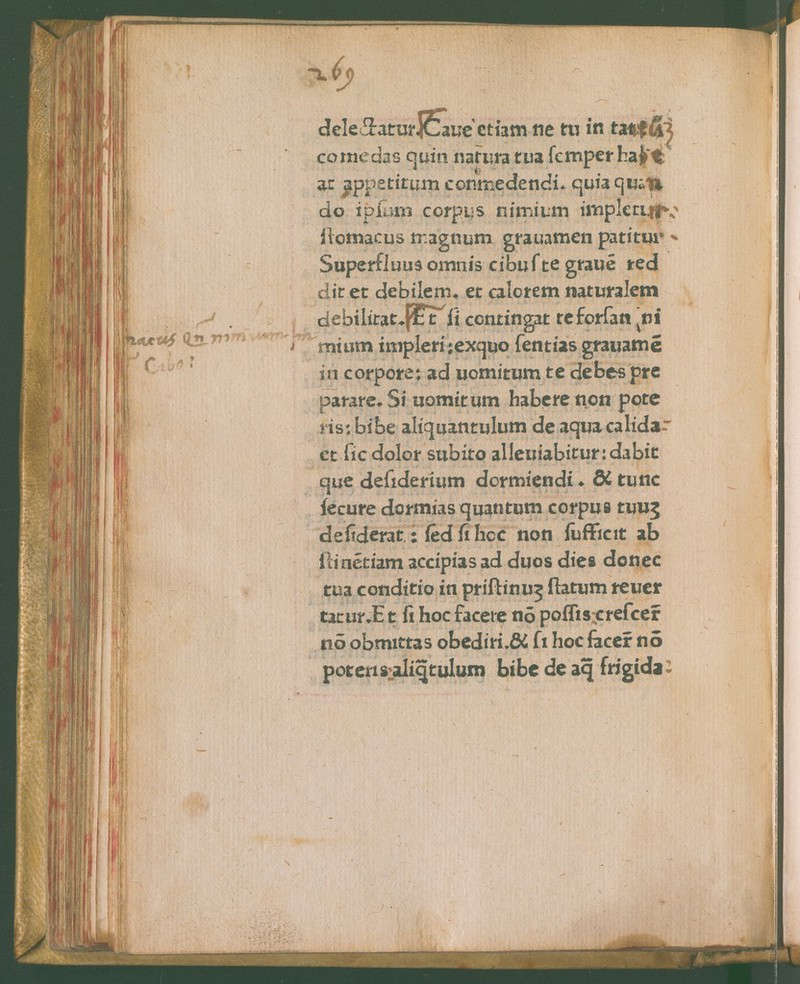 269
delectatur. Caue etiam ne tu in tantũ
comedas quin natura tua ſemper habe
at appetitum conmedendi. quia quan
do ipſum corpus nimium impletur
ſtomacus magnum grauamen patitur
Superfluus omnis cibuſ te grauē red
dit et debilem. et calorem naturalem
debilitat. Et ſi contingat te forſan ni
mium impleri: exquo ſentias grauamē
in corpore: ad uomitum te debes pre
parare. Si uomitum habere non pote
ris: bibe aliquantulum de aqua calida:
et ſic dolor subito alleuiabitur: dabit
que deſiderium dormiendi. & tunc
ſecure dormias quantum corpus tuuꝫ
deſiderat: ſed ſi hoc non ſufficit ab
ſtinētiam accipias ad duos dies donec
tua conditio in priſtinuꝫ ſtatum reuer
tatur. Et ſi hoc facere nō poſſis: creſcer̃
nō obmittas obediri. & ſi hoc facer̃ nō
poteris: aliq̃tulum bibe de aq̃ frigida:
Cibo